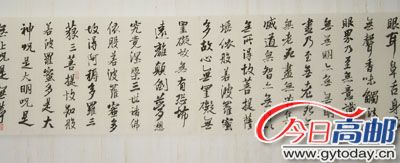 眼耳鼻舌身
無聲香味觸法
眼界乃至無意識
無無明亦無
盡乃至無老
無老死盡無苦
滅道無智亦無
無所得故菩提薩
埵依般若波羅蜜
多故心無罣礙無
罣礙故無有恐怖
遠離顛倒夢想
究竟涅槃三世諸佛
依般若波羅蜜多
故得阿耨多羅三
藐三菩提故知般
若波羅蜜多是大
神呪是大明呪是
無上呪是無等
今日高邮
www.gytoday.cn